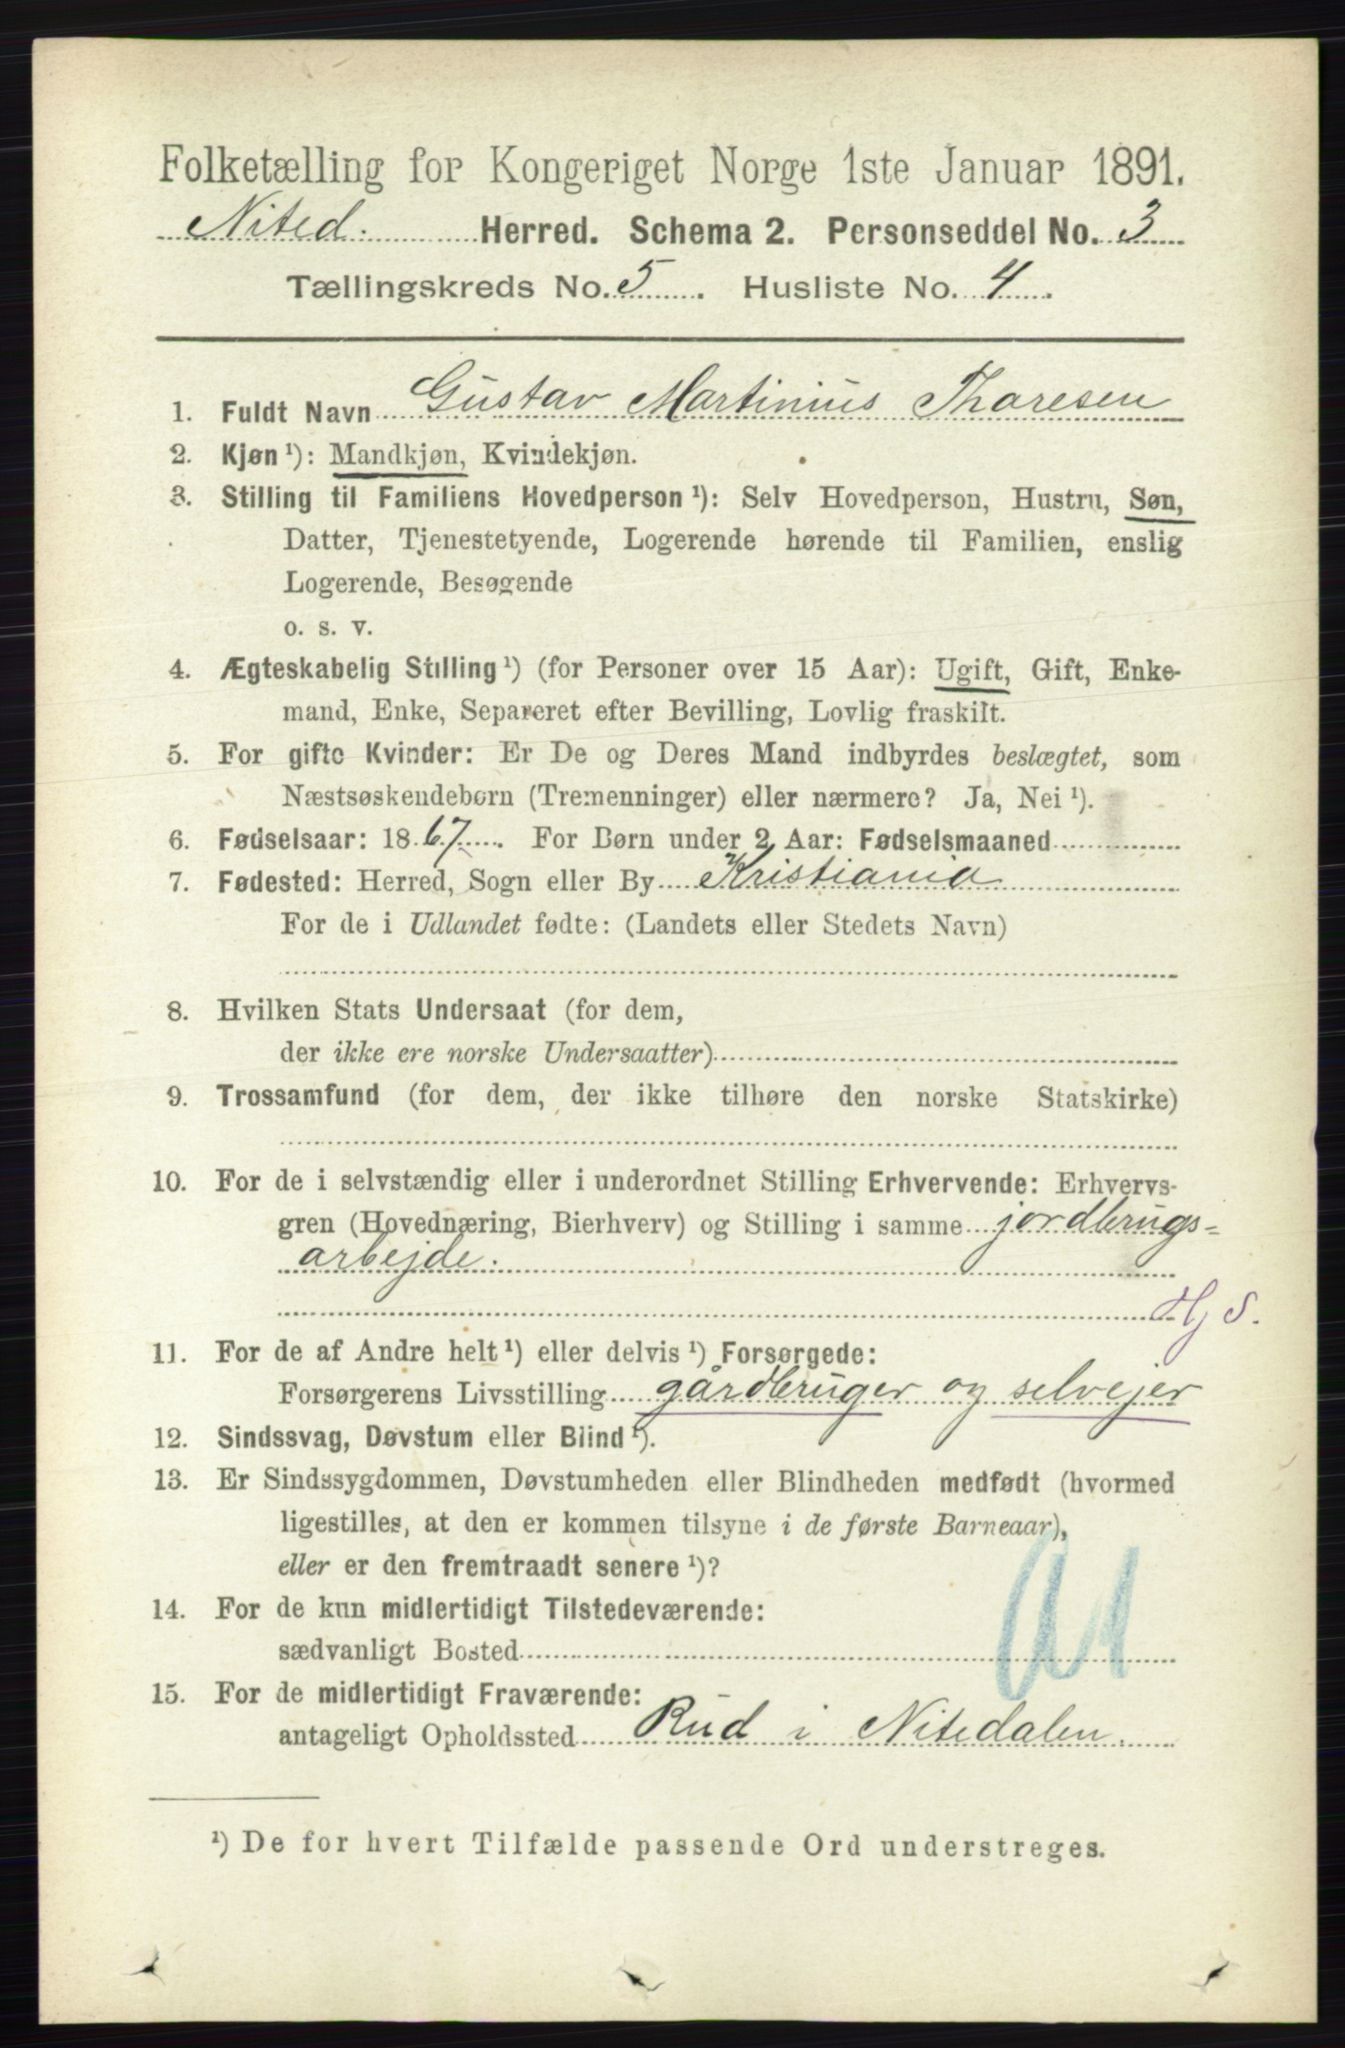 Folketælling for Kongeriget Norge 1ste Januar 1891.
Nited. Herred. Schema 2. Personseddel No. 3
Tællingskreds No. 5. Husliste No. 4.
1. Fuldt Navn Gustav Martinius Thoresen
2. Kjøn ¹): Mandkjøn, Kvindekjøn.
3. Stilling til Familiens Hovedperson ¹): Selv Hovedperson, Hustru, Søn,
Datter, Tjenestetyende, Logerende hørende til Familien, enslig
Logerende, Besøgende
o. s. v.
4. Ægteskabelig Stilling ¹) (for Personer over 15 Aar): Ugift, Gift, Enke-
mand, Enke, Separeret efter Bevilling, Lovlig fraskilt.
5. For gifte Kvinder: Er De og Deres Mand indbyrdes beslægtet, som
Næstsøskendebørn (Tremenninger) eller nærmere? Ja, Nei ¹).
6. Fødselsaar: 1867. For Børn under 2 Aar: Fødselsmaaned
7. Fødested: Herred, Sogn eller By Kristiania
For de i Udlandet fødte: (Landets eller Stedets Navn)
8. Hvilken Stats Undersaat (for dem,
der ikke ere norske Undersaatter)
9. Trossamfund (for dem, der ikke tilhøre den norske Statskirke)
10. For de i selvstændig eller i underordnet Stilling Erhvervende: Erhvervs-
gren (Hovednæring, Bierhverv) og Stilling i samme jordbrugs-
arbejde.
Hj S.
11. For de af Andre helt ¹) eller delvis ¹) Forsørgede:
Forsørgerens Livsstilling gårdbruger og selvejer
12. Sindssvag, Døvstum eller Blind ¹).
13. Er Sindssygdommen, Døvstumheden eller Blindheden medfødt (hvormed
ligestilles, at den er kommen tilsyne i de første Barneaar),
eller er den fremtraadt senere ¹)?
14. For de kun midlertidigt Tilstedeværende:
sædvanligt Bosted
15. For de midlertidigt Fraværende:
antageligt Opholdssted Rud i Nitedalen.
¹) De for hvert Tilfælde passende Ord understreges.